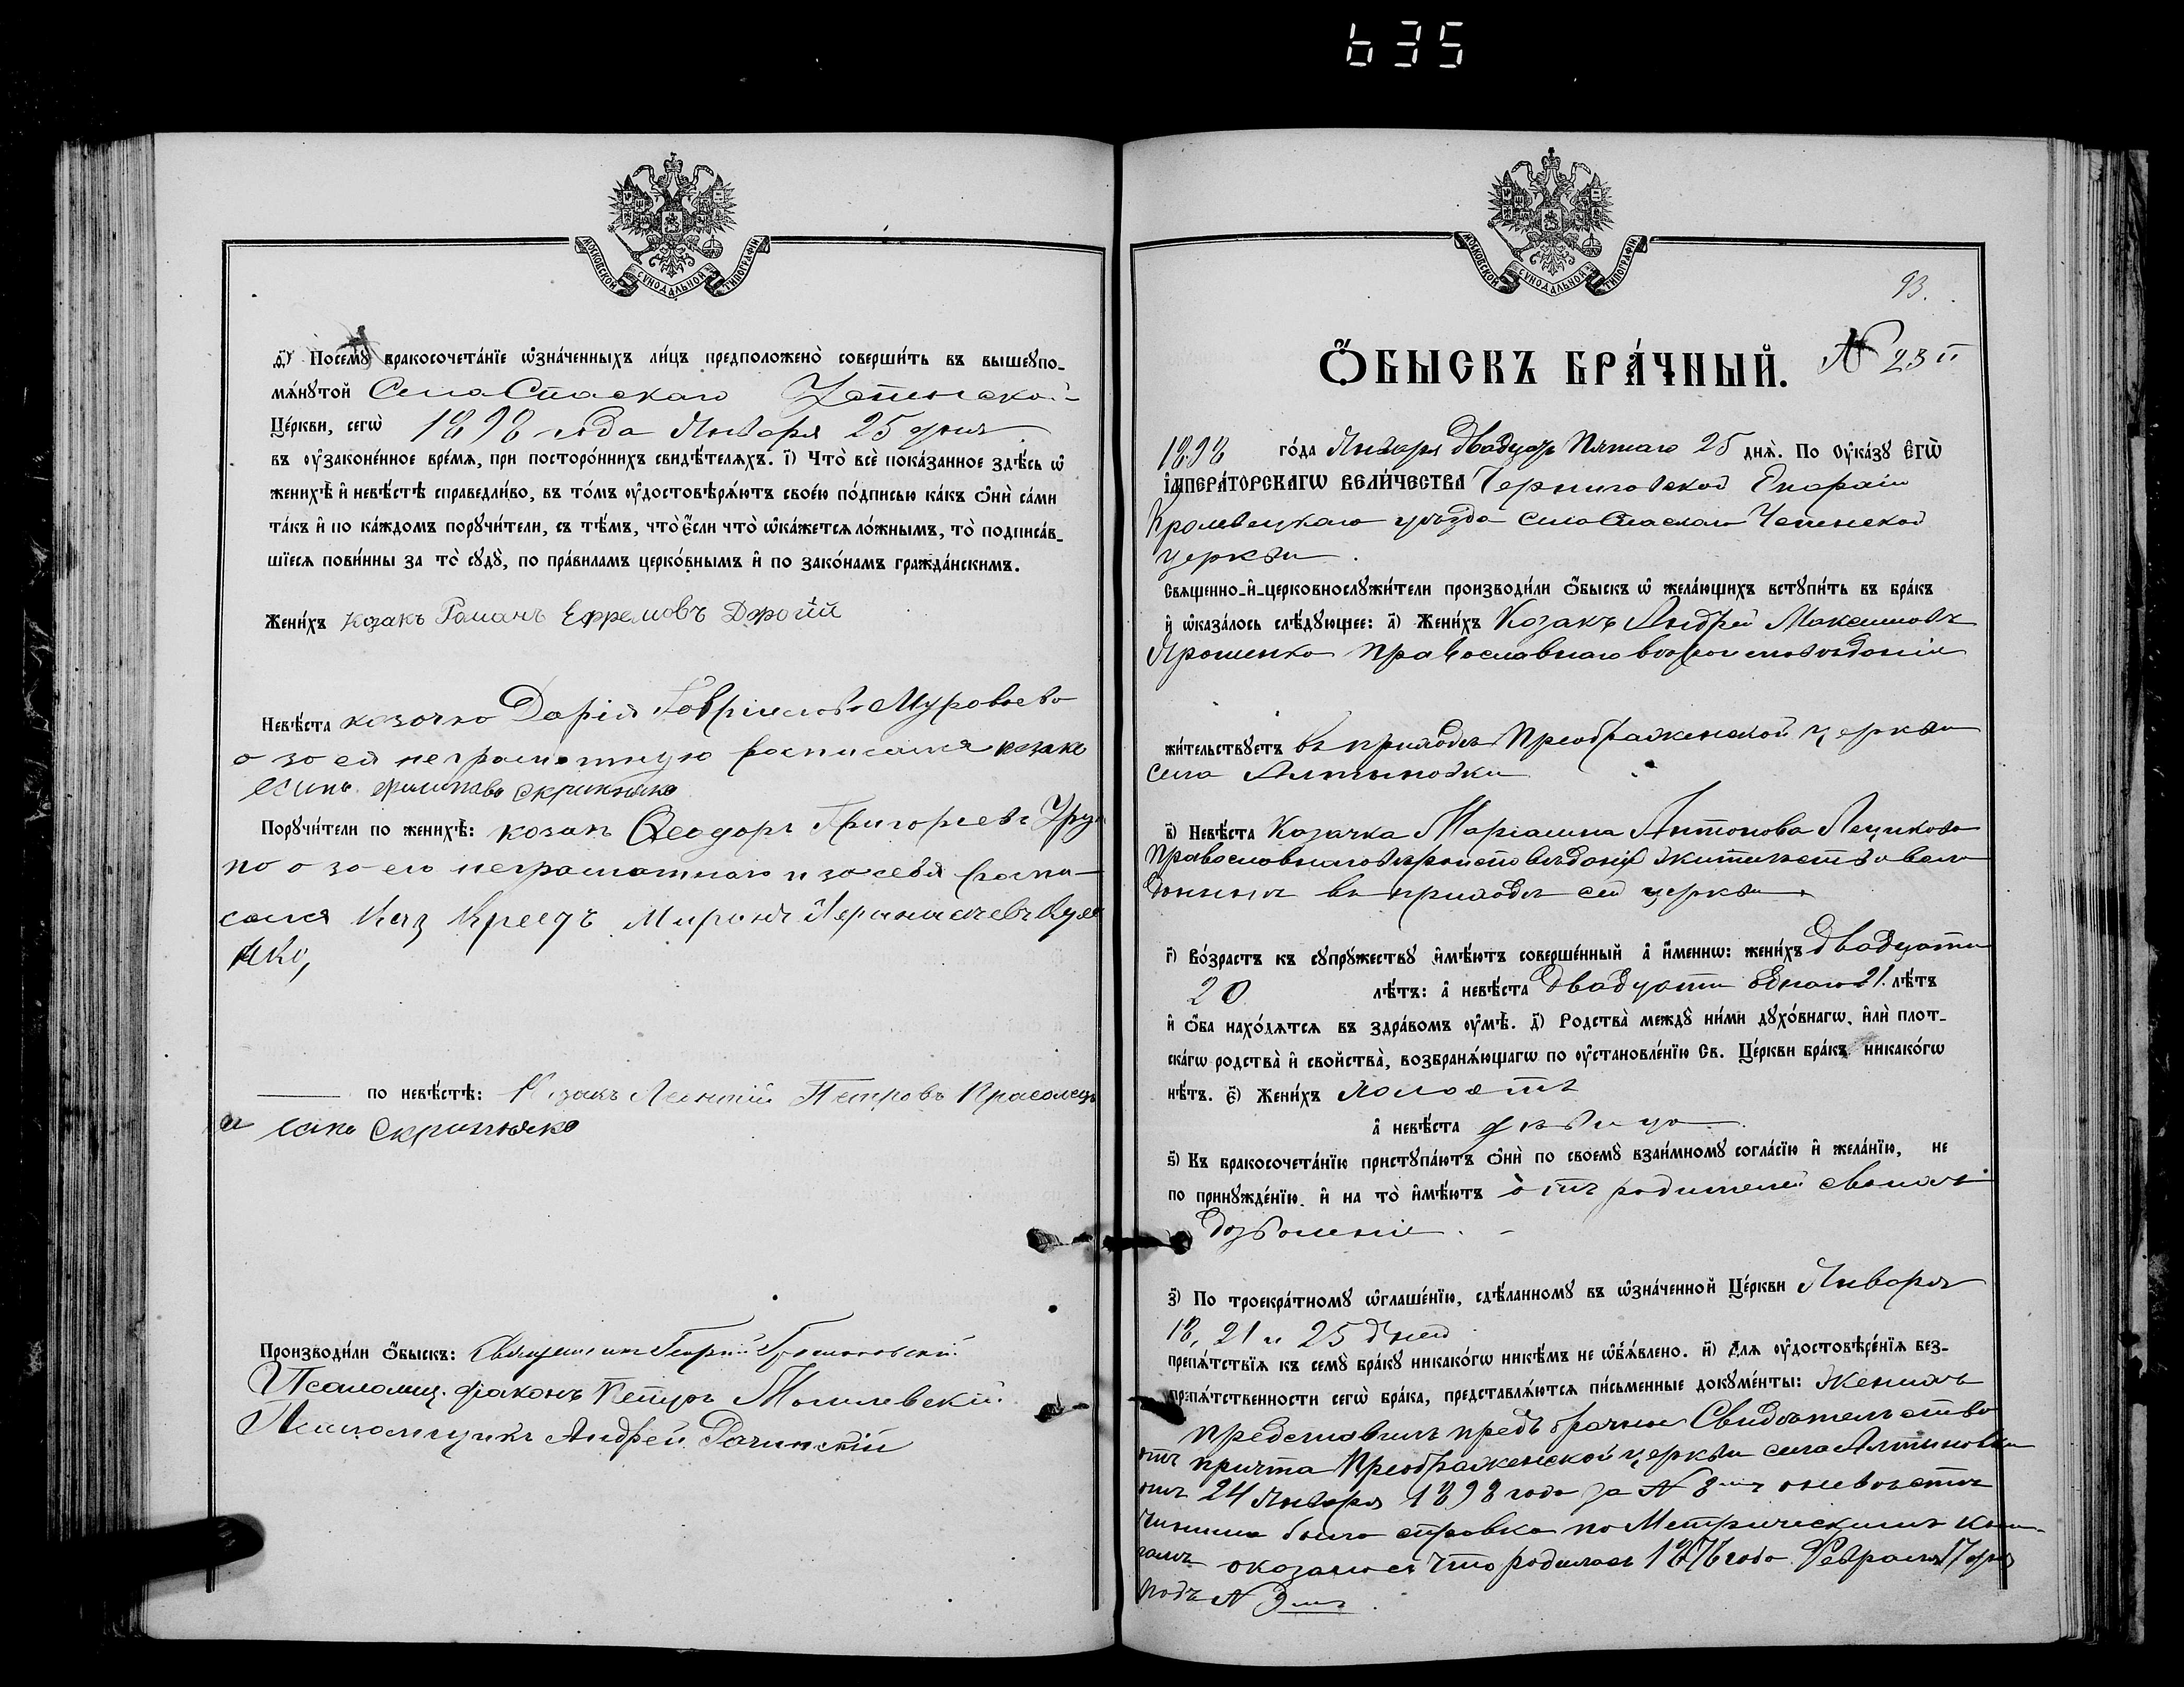 635
МОСКОВСКОЙ СѴНОДАЛЬНОЙ ТИПОГРАФІИ
д҃і) Посемꙋ̀ бракосочета́нїе ѡ҆зна́ченныхъ ли́цъ предположено̀ соверши́ть въ вышеꙋпо-
мѧ́нꙋтой Села Спаскаго Успенской
Це́ркви, сегѡ̀ 1898 года Января 25 дня
въ ᲂу҆законе́нное вре́мѧ, при посторо́ннихъ свидѣ́телѧхъ. і҃) Что̀ всѐ пока́занное здѣ́сь ѡ҆
женихѣ̀ и҆ невѣ́стѣ справедли́во, въ то́мъ ᲂу҆достовѣрѧ́ютъ свое́ю по́дписью ка́къ ѻ҆нѝ са́ми
та́къ и҆ по ка́ждомъ порꙋчи́тели, съ тѣ́мъ, что̀ є҆́сли что̀ ѡ҆ка́жетсѧ ло́жнымъ, то̀ подписа́в-
шїесѧ пови́нны за то̀ сꙋдꙋ̀, по пра́виламъ церко́внымъ и҆ по зако́намъ гражда́нскимъ.
Жени́хъ козакъ Романъ Ефремовъ Дорогій
Невѣ́ста козачка Дарія Гавріилова Муравьева
а за ея неграмотную росписался козак
Есипъ Филиповъ Скрипняко
Порꙋчи́тели по женихѣ̀: козакъ Ѳеодоръ Григорьевъ
а за его неграмотнаго и за себя роспи-
сался Каз Миронъ
по невѣ́стѣ: Козакъ Леонтій Петровъ Прасолецъ
и Есипъ Скрипняко
Производи́ли ѻ҆́быскъ: Священникъ
Псаломщ. діаконъ Петръ Могилевскій
Псаломщикъ Андрей Рачинскій
МОСКОВСКОЙ СѴНОДАЛЬНОЙ ТИПОГРАФІИ
93.
Ѻ҆БЫСКЪ БРА́ЧНЫЙ. № 23й
1898 го́да Января двадцать Пятаго 25 днѧ̀. По ᲂу҆ка́зꙋ Є҆ГѠ̀
І҆МПЕРА́ТОРСКАГѠ ВЕЛИ́ЧЕСТВА Черниговской Епархіи
Кролевецкаго уѣзда села Спаскаго Успенской
церкви.
Свѧще́нно-и҆-церковнослꙋжи́тели производи́ли ѻ҆́быскъ ѡ҆ жела́ющихъ встꙋпи́ть въ бра́къ
и҆ ѡ҆каза́лось слѣ́дꙋющее: а҃) Жени́хъ Козакъ Андрей Максимовъ
Ярошенко Православнаго вѣроисповѣданія
жи́тельствꙋетъ въ приходѣ Преображенской церкви
села Алтыновки
в҃) Невѣ́ста Казачка Маріамна Антонова Лещикова
Православнаго вѣроисповѣданія жительство
въ приходѣ сей церкви.
г҃) Во́зрастъ къ сꙋпрꙋ́жествꙋ и҆мѣ́ютъ соверше́нный а҆ и҆́меннѡ: жени́хъ двадцати
20 лѣ́тъ: а҆ невѣ́ста двадцати однаго 21. лѣ́тъ
и҆ ѻ҆́ба нахо́дѧтсѧ въ здра́вомъ ᲂу҆мѣ̀. д҃) Родства̀ междꙋ̀ ни́ми дꙋхо́внагѡ, и҆лѝ плот-
ска́гѡ родства̀ и҆ свойства̀, возбранѧ́ющагѡ по ᲂу҆становле́нїю Св. Це́ркви бра́къ никако́гѡ
нѣ́тъ. є҃) Жени́хъ холостъ
а҆ невѣ́ста дѣвица.
ѕ҃) Къ бракосочета́нїю пристꙋпа́ютъ ѻ҆нѝ по своемꙋ̀ взаи́мномꙋ согла́сїю и҆ жела́нїю, не
по принꙋжде́нїю, и҆ на то̀ и҆мѣ́ютъ отъ родителей своихъ
дозволеніе.
з҃) По троекра́тномꙋ ѡ҆глаше́нїю, сдѣ́ланномꙋ въ ѡ҆зна́ченной Це́ркви Января
18, 21 и 25 дней
препѧ́тствїѧ къ семꙋ̀ бра́кꙋ никако́гѡ никѣ́мъ не ѡ҆б̾ѧ́влено. и҃) Длѧ ᲂу҆достовѣре́нїѧ без-
препѧ́тственности сегѡ̀ бра́ка, представлѧ́ютсѧ пи́сьменные докꙋме́нты: Женихъ
представилъ предъ брачное Свидѣтельство
отъ причта Преображенской церкви села Алтыновки
отъ 24 Января 1898 года за № 8мъ о невѣстѣ
чинима была справка по Метрическимъ кни-
гамъ оказалось что родилась 1876 года Февраля 17 дня
подъ № 9мъ.